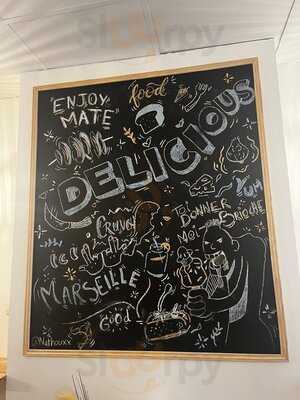 ENJOY
MATE
food
DELICIOUS
YUM
CRUNCH
TO BONNER
BRIOCHE
MARSEILLE
Good
@Nathouxx
Sluurpy